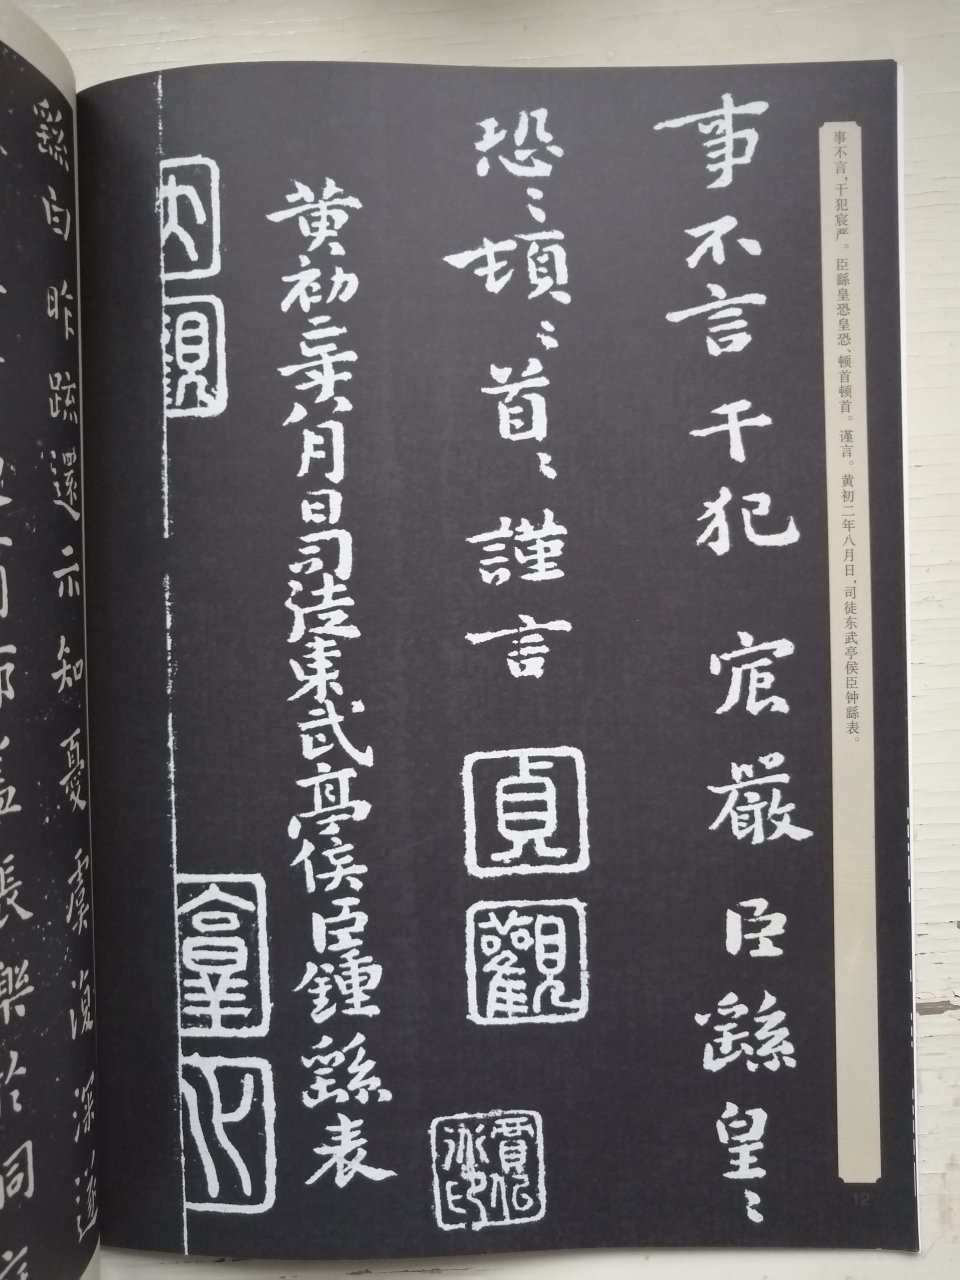 事不言，干犯宸严。臣繇皇恐皇恐、顿首顿首。谨言。黄初二年八月日，司徒东武亭侯臣钟繇表。
事不言干犯宸嚴臣繇皇〻
恐〻頓〻首〻謹言
貞
觀
黃初二年八月日司徒東武亭侯臣鍾繇表
12
繇白昨疏還示知憂虞復深遂
長樂於同